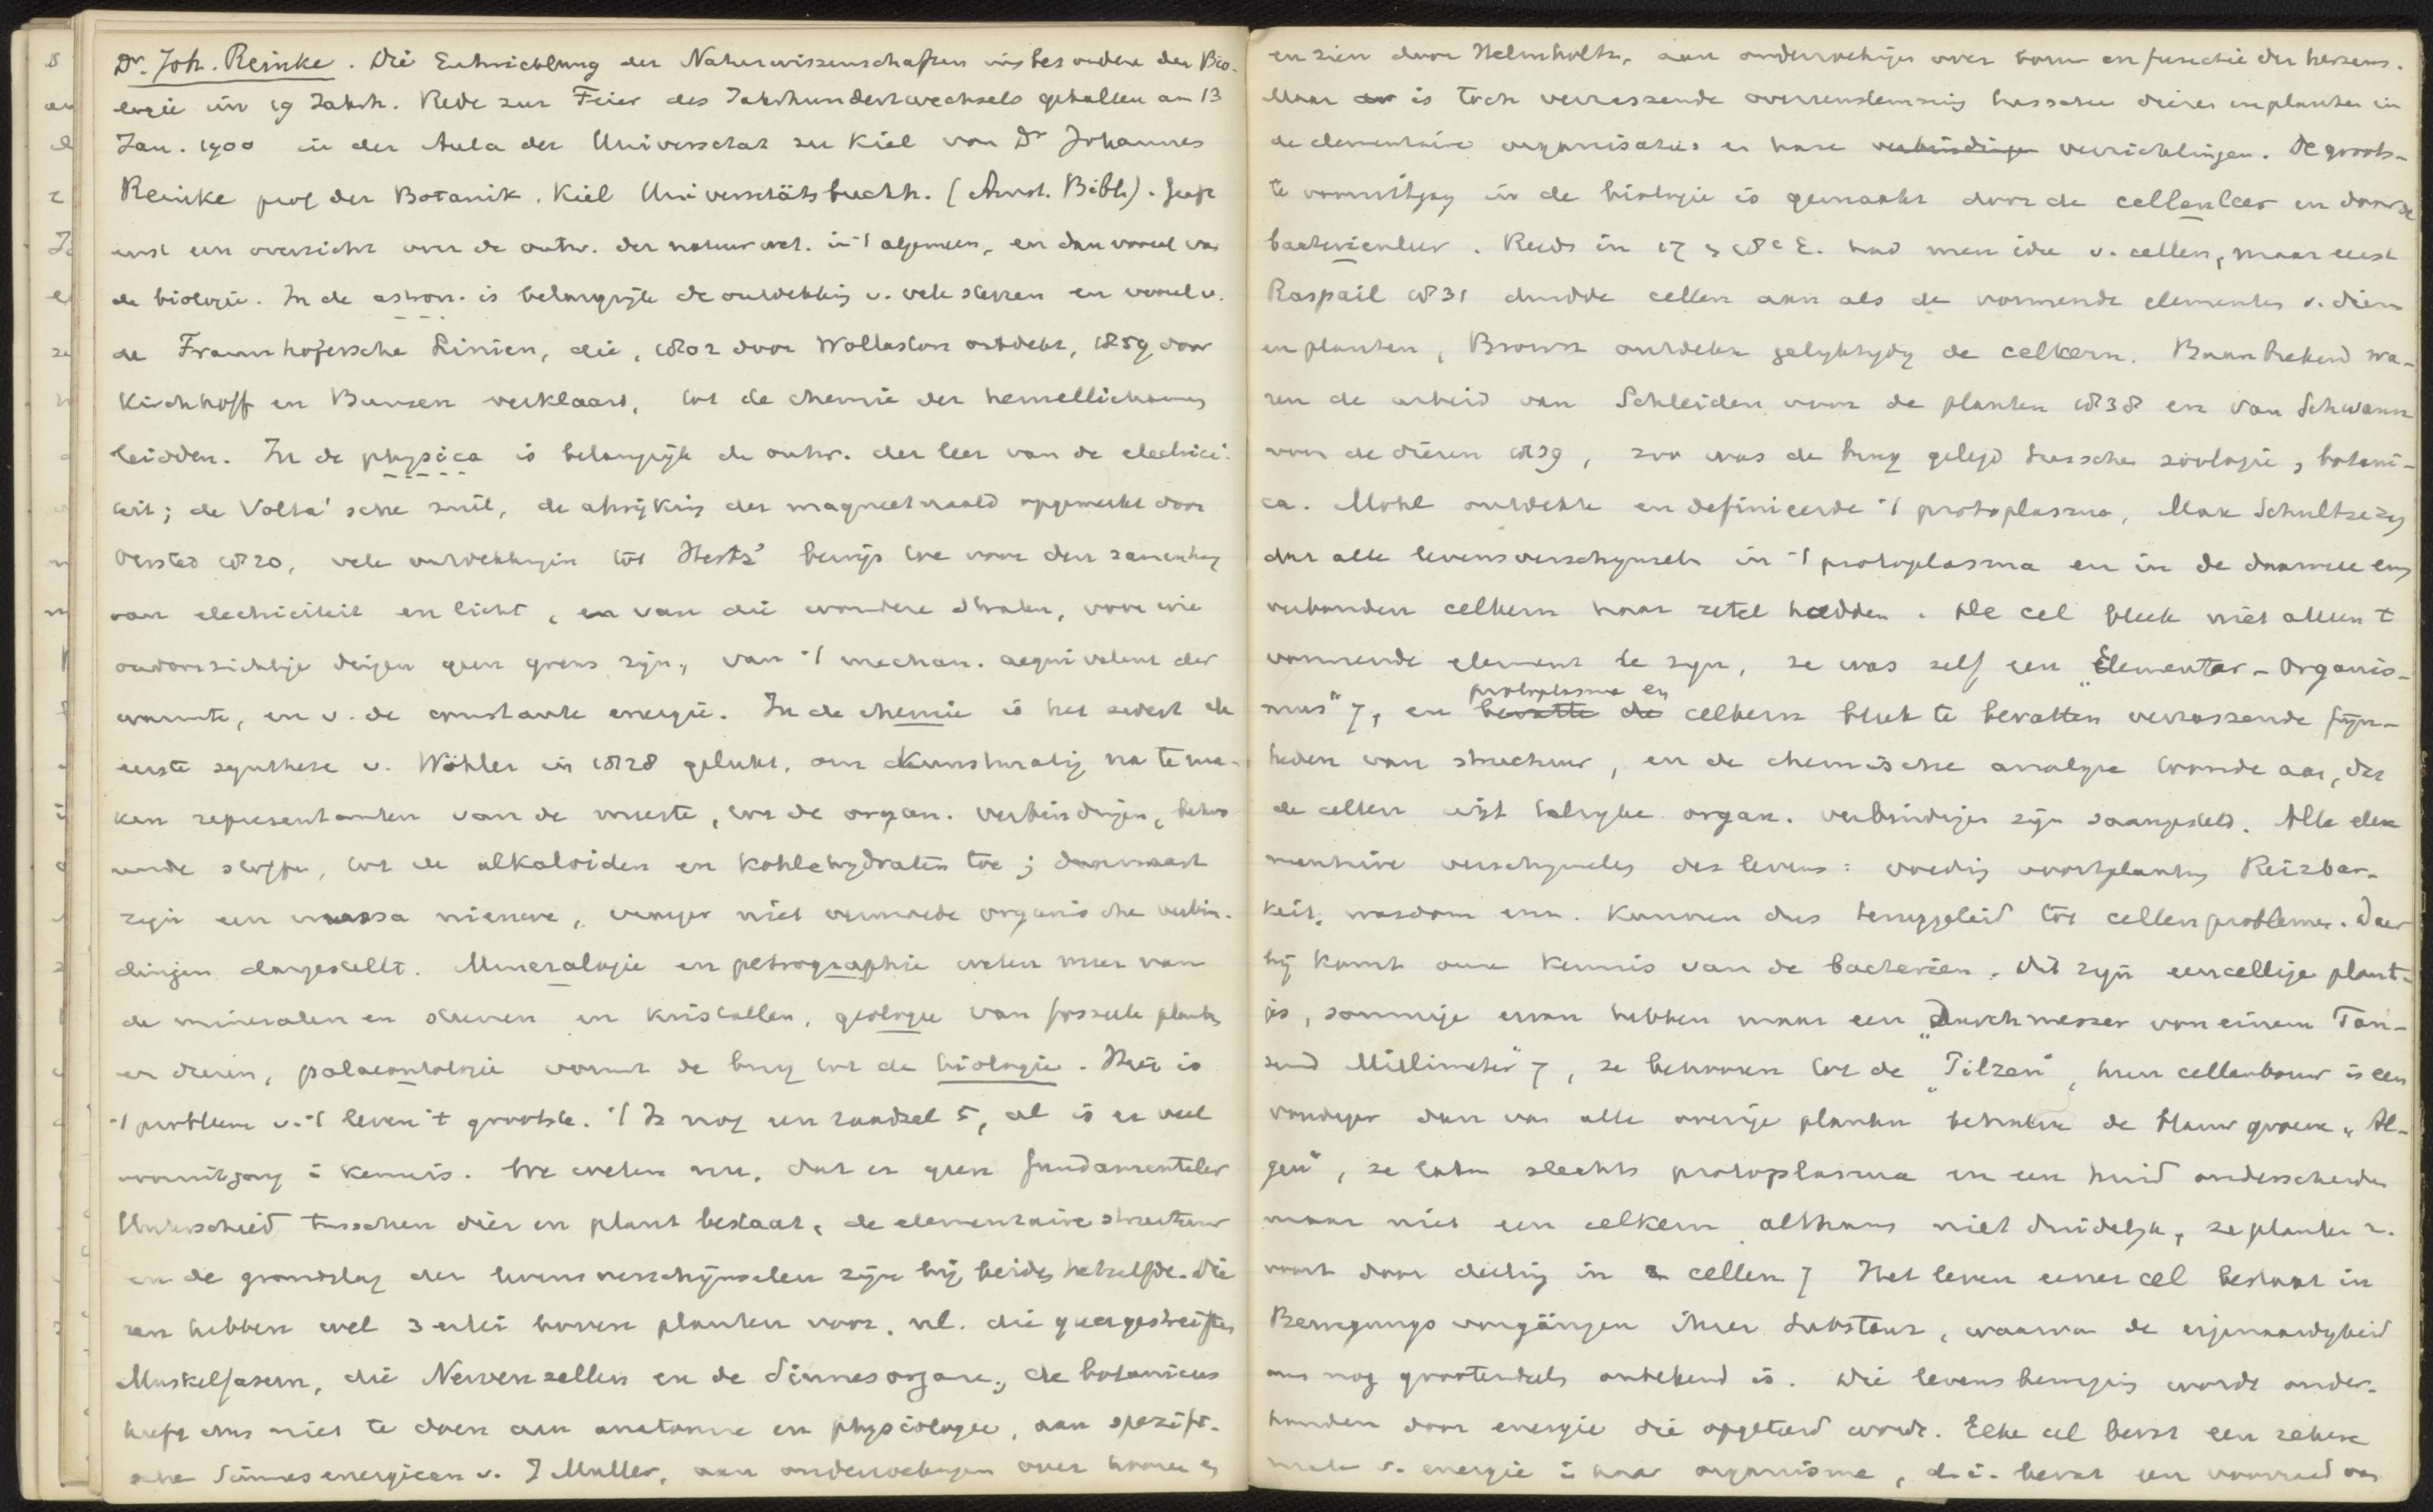 Dr. Joh. Reinke. Die Entwicklung der Naturwissenschaften insbesondere der Bio-
logie im 19 Jahrh. Rede zur Feier des Jahrhundertwechsels gehalten am 13
Jan. 1900 in der Aula der Universität zu Kiel von Dr Johannes
Reinke prof der Botanik. Kiel Universitätsbuchh. (Amst. Bibl.). geeft
eerst een overzicht over de ontw. der natuurwet. in 't algemeen, en dan vooral van
de biologie. In de astron. is belangrijk de ontdekking v. vele sterren en vooral v.
de Fraunhofersche Linien, die, 1802 door Wollaston ontdekt, 1859 door
Kirchhoff en Bunsen verklaard, tot de chemie der hemellichamen
leidden. In de physica is belangrijk de ontw. der leer van de electrici-
teit; de Volta'sche zuil, de afwijking der magneetnaald opgemerkt door
Oersted 1820, vele ontdekkingen tot Hertz' bewijs toe voor den samenhang
van electriciteit en licht, en van die wondere stralen, voor wie
ondoorzichtige dingen geen grens zijn, van 't mechan. aequivalent der
warmte, en v. de constante energie. In de chemie is het sedert de
eerste synthese v. Wöhler in 1828 gelukt, om kunstmatig na te ma-
ken representanten van de meeste, tot de organ. verbindingen, behoo
rende stoffen, tot de alkaloiden en kohlehydraten toe; daarnaast
zijn een massa nieuwe, vroeger niet vermoede organische verbin-
dingen dargestellt. Mineralogie en petrographie weten meer van
de mineralen en steenen en kristallen, geologie van fossiele planten
en dieren, palaeontologie vormt de brug tot de biologie. Hier is
't probleem v. 't leven 't grootste. 't Is nog een raadsel 5, al is er veel
vooruitgang i kennis. We weten nu, dat er geen fundamenteler
Unterschied tusschen dier en plant bestaat, de elementaire structuur
en de grondslag der levensverschijnselen zijn bij beide hetzelfde. Die
ren hebben wel 3 erlei boven planten voor, nl. die quergestreiften
Muskelfasern, die Nervenzellen en de Sinnesorgane, de botanicus
heeft dus niet te doen aan anatomie en physiologie, aan spezifi-
sche Sinnesenergieen v. J Muller, aan onderzoekingen over hooren en
en zien door Helmholtz, aan onderzoekingen over vorm en functie der hersens.
Maar er is toch verrassende overeenstemming tusschen dieren en planten in
de elementaire organisatie en hare verbindingen verrichtingen. De groots-
te vooruitgang in de biologie is gemaakt door de cellenleer en door de
bacterienleer. Reeds in 17 en 18e E. had men idee v. cellen, maar eerst
Raspail 1831 duidde cellen aan als de vormende elementen v. dieren
en planten, Brown ontdekte gelijktijdig de celkern. Baanbrekend wa-
ren de arbeid van Schleiden voor de planten 1838 en van Schwann
voor de dieren 1839, zoo was de brug gelegd tusschen zoologie, botani-
ca. Mohl ontdekte en definieerde 't protoplasma, Max Schultze zag
dat alle levensverschijnselen in 't protoplasma en in de daarmee eng
verbonden celkern haar zetel hadden. De cel bleek niet alleen 't
vormende element te zijn, ze was zelf een „Elementar-Organis-
mus" 7, en bevatte de protoplasma en celkern bleek te bevatten verrassende fijn-
heden van structuur, en de chemische analyse toonde aan, dat
de cellen uit talrijke organ. verbindingen zijn saamgesteld. Alle ele
mentaire verschijnselen des levens: voeding voortplanting Reizbar-
keit, wasdom enz. kunnen dus teruggeleid tot cellenproblemen. Daar
bij komt onze kennis van de bacterien. Dit zijn eencellige plant-
jes, sommige ervan hebben maar een „Durchmesser von einem Tau-
send Millimeter" 7, ze behooren tot de „Pilzen", hun cellenbouw is een
voudiger dan van alle overige planten behalve de blauwgroene „Al-
gen", ze laten slechts protoplasma en een huid onderscheiden
maar niet een celkern althans niet duidelijk, ze planten z.
voort door deeling in 2 cellen 7 Het leven eener cel bestaat in
Bewegungsvorgängen ihrer Substanz, waarvan de eigenaardigheid
ons nog grootendeels onbekend is. Die levensbeweging wordt onder-
houden door energie die opgeteerd wordt. Elke cel bevat een zekere
mate v. energie in haar organisme, d.i. bevat een voorraad van